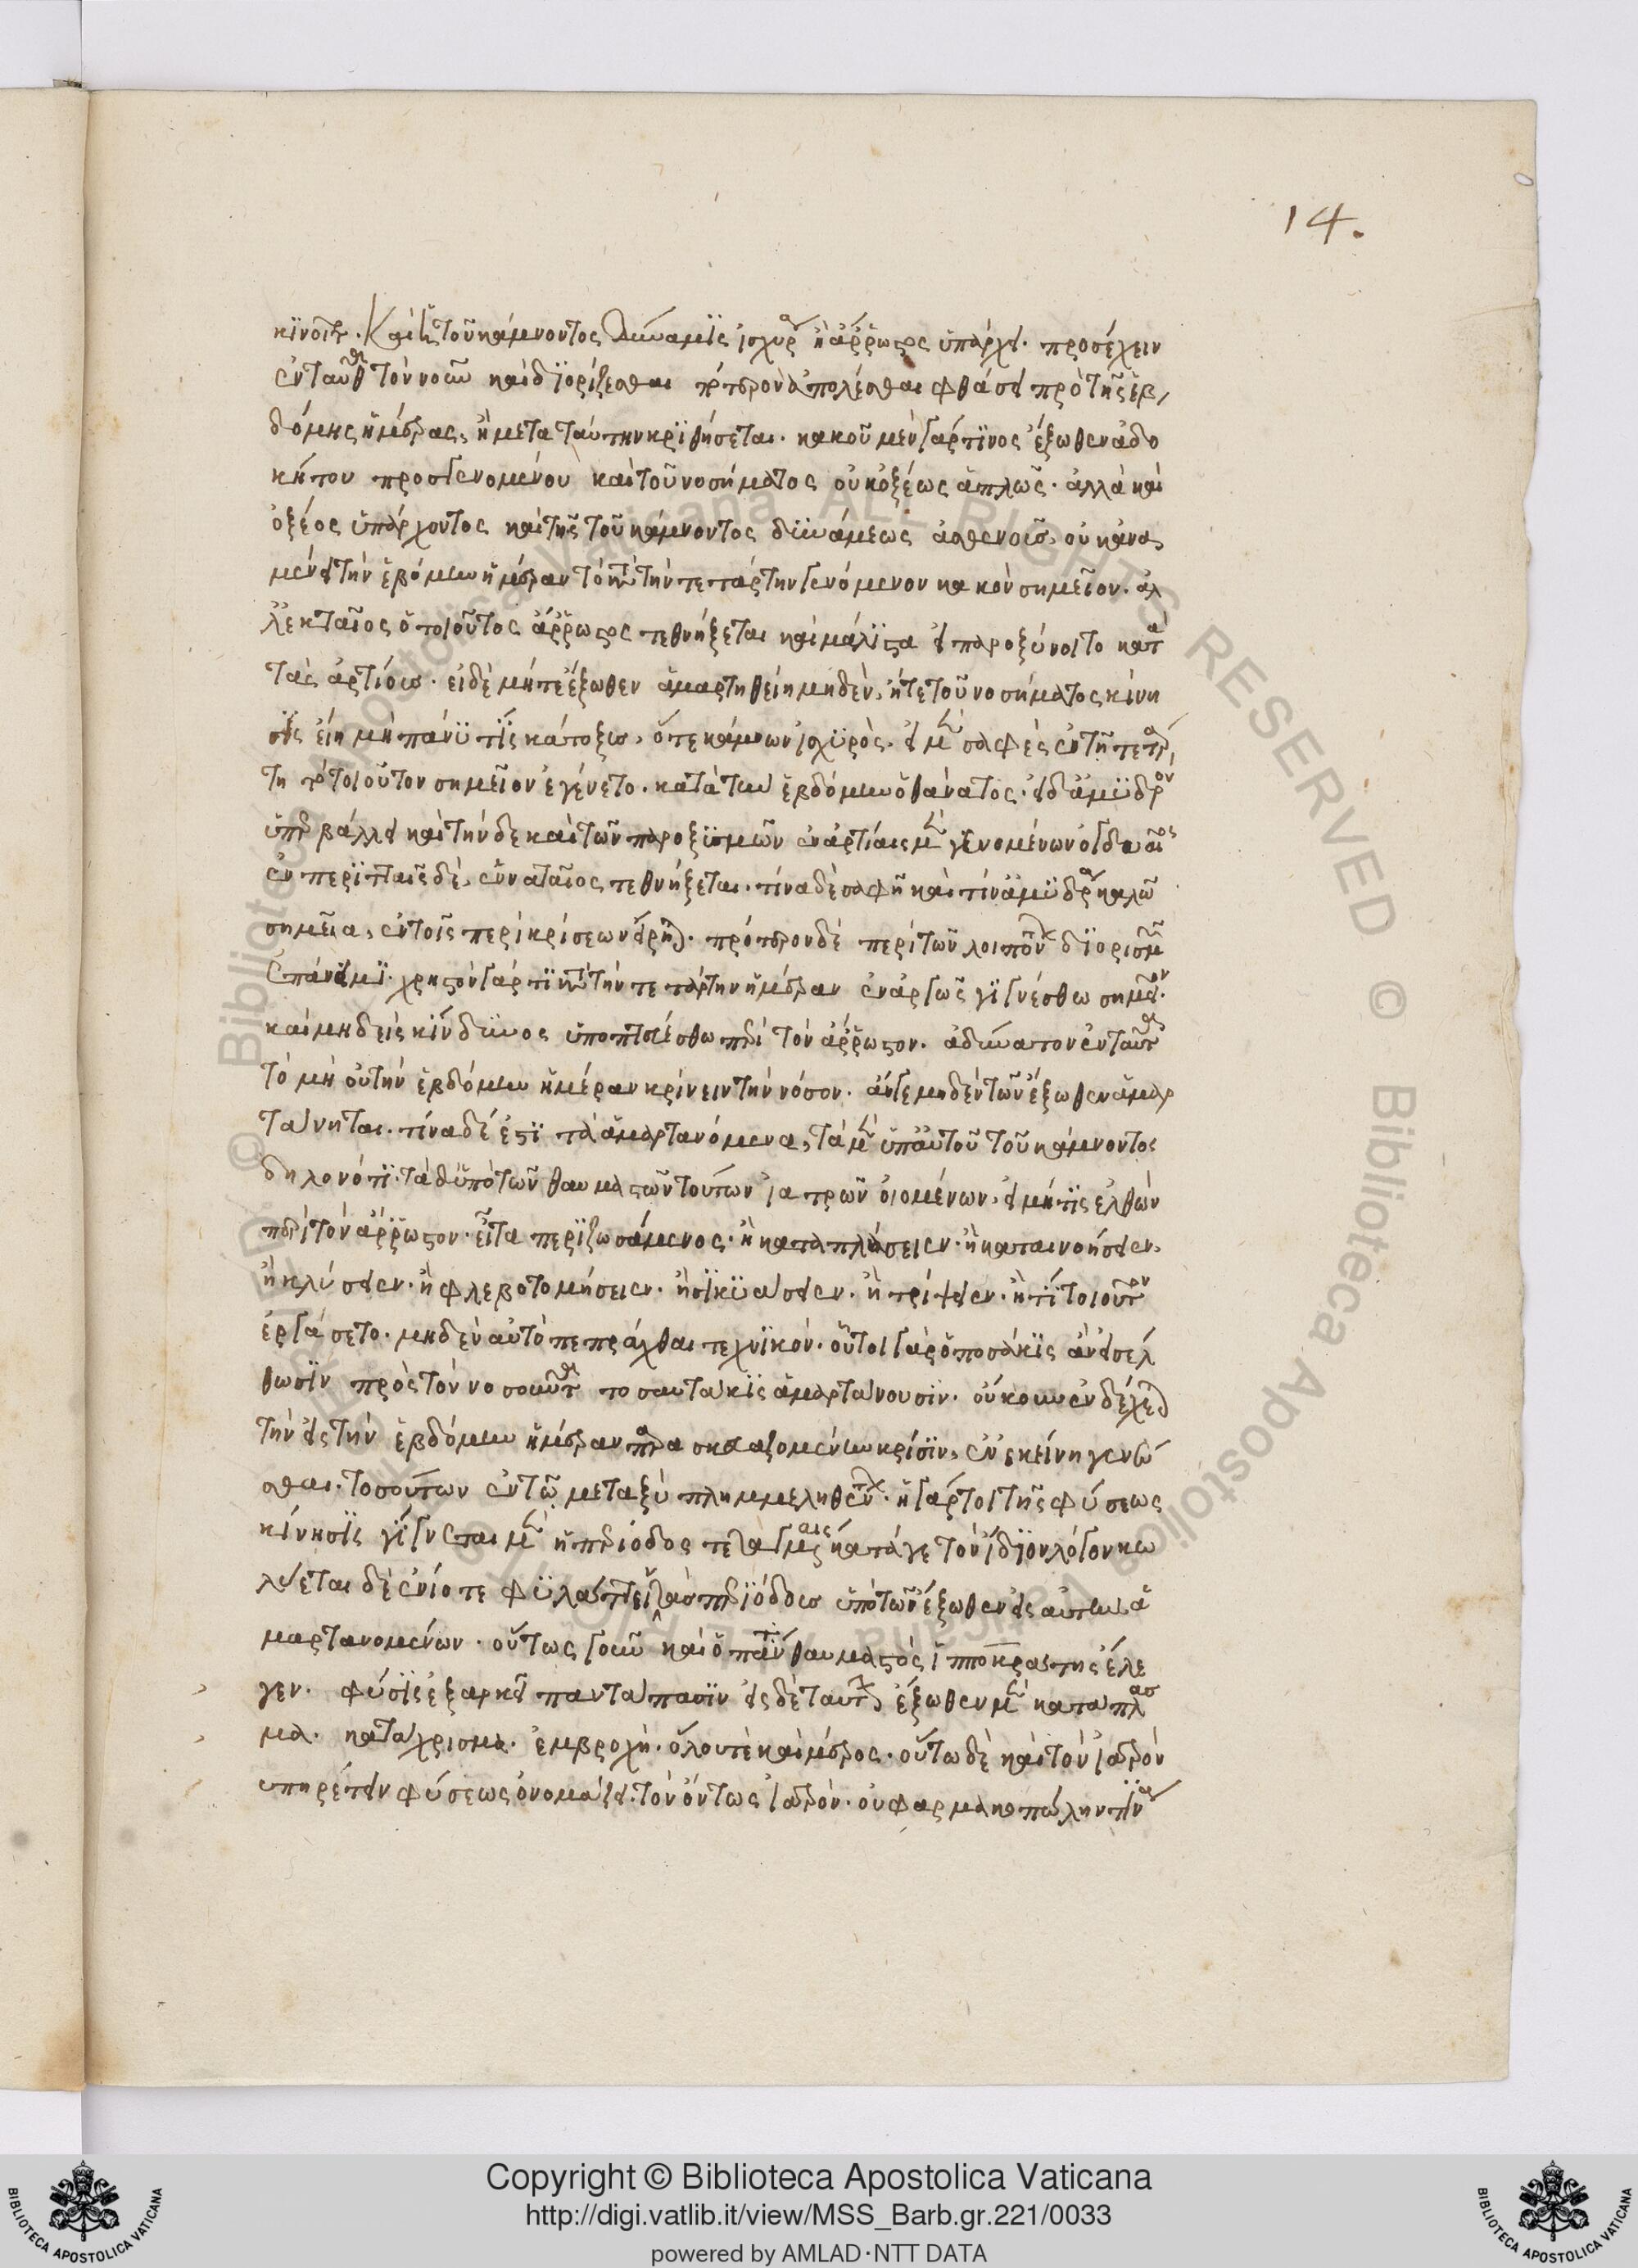 14.
κϊνοῖτο. Καὶ ἡ τοῦ κάμνοντος δύναμϊς ἰσχυρὰ ἢ ἄρρωστος ὑπάρχει. προσέχειν
ἐνταῦθα τὸν νοῦν καὶ δϊορίζεσθαι πότερον ἀπολέσθαι φθάσει πρὸ τῆς ἑβ
δόμης ἡμέρας, ἢ μετα ταύτην κρϊθήσεται. κακοῦ μὲν γάρ τϊνος ἔξωθεν ἀδο
κήτου προσγενομένου καὶ τοῦ νοσήματος οὐκ ὀξέως ἁπλῶς. ἀλλὰ καὶ
ὀξέος ὑπάρχοντος καὶ τῆς τοῦ κάμνοντος δϋνάμεως ἀσθενοῦς, οὐκ ἀνα
μένει τὴν ἑβδόμην ἡμέραν τὸ κατὰ τὴν τετάρτην γενόμενον κακὸν σημεῖον. ἀλ
λ' ἑκταῖος ὁ τοιοῦτος ἄρρωστος τεθνήξεται καὶ μάλϊστα εἰ παροξύνοιτο κατὰ
τὰς ἀρτίους. εἰ δὲ μήτε ἔξωθεν ἁμαρτηθείη μηδὲν, ἥ τε τοῦ νοσήματος κίνη
σϊς εἴη μὴ πάνϋ τϊς κάτοξυς, ὅ τε κάμνων ἰσχϋρὸς. εἰ μὲν σαφὲς ἐν τῇ τετάρ
τη τὸ τοιοῦτον σημεῖον ἐγένετο. κατὰ την ἑβδόμην ὁ θάνατος. εἰ δ' ἀμϋδρον
ὑπερβάλλει καὶ τήνδε καὶ τῶν παροξϋσμῶν ἐν ἀρτίαις μὲν γϊνομένων ὀγδοαῖος
ἐν περϊτταῖς δὲ, ἐνναταῖος τεθνήξεται. τίνα δὲ σαφῆ καὶ τίν' ἀμϋδρὰ καλῶ
σημεῖα, ἐν τοῖς περὶ κρίσεων εἴρηται. πρότερον δὲ περὶ τῶν λοιπῶν δϊορισμῶν
ἐπάνειμϊ. χρηστὸν γάρ τϊ κατὰ τὴν τετάρτην ἡμέραν ἐναργῶς γϊγνέσθω σημεῖον.
καὶ μηδεὶς κίνδϋνος ὑποπτευέσθω περὶ τὸν ἄρρωστον. ἀδύνατον ἐνταῦθα
τὸ μὴ οὐ τὴν ἑβδόμην ἡμέραν κρίνειν τὴν νόσον. ἄν γε μηδὲν τῶν ἔξωθεν ἁμαρ
τάνηται. τίνα δέ ἐστϊ τὰ ἁμαρτανόμενα, τὰ μὲν ὑπ' αὐτοῦ τοῦ κάμνοντος
δηλονότϊ. τὰ δ' ὑπὸ τῶν θαυμαστῶν τούτων ἰατρῶν οἰομένων, εἰ μή τϊς ἐλθὼν
περὶ τὸν ἄρρωστον. εἶτα περϊζωσάμενος. ἢ καταπλάσειεν. ἢ καταιονήσειεν,
ἢ κλύσειεν. ἢ φλεβοτομήσειεν. ἢ σϊκϋάσειεν. ἢ τρίψειεν. ἤ τϊ τοιοῦτον
ἐργάσετο. μηδὲν αὐτὸ πεπράχθαι τεχνϊκόν. οὗτοι γὰρ ὁποσάκϊς ἂν εἰσέλ
θωσϊν πρὸς τὸν νοσοῦντα τοσαυτάκϊς ἁμαρτάνουσϊν. οὔκουν ἐνδέχεται
τὴν εἰς τὴν ἑβδόμην ἡμέραν παρασκευαζομένην κρίσϊν, ἐν ἐκείνη γενέ
σθαι. τοσούτων ἐν τῷ μεταξὺ πλημμεληθέντων. ἡ γάρ τοι τῆς φύσεως
κίνησϊς γϊγνεται μὲν ἡ περίοδος τεταγμέναις κατά γε τὸν ἴδϊον λόγον κω
λύεται δὲ ἐνίοτε φϋλάττειν τὰς περϊόδους ὑπὸ τῶν ἔξωθεν εἰς αὐτην ἁ
μαρτανομένων. οὕτως γοῦν καὶ ὁ πάντα θαυμαστὸς ἱπποκράτης ἔλε
γεν. φύσϊς ἐξαρκεῖ παντάπασϊν εἰς δὲ ταύτην ἔξωθεν μὲν κατάπλασ
μα. κατάχρισμα. ἐμβροχὴ. ὅλου τὲ καὶ μέρος. οὕτω δὲ καὶ τὸν ἰατρὸν
υπηρέτην φύσεως ὀνομάζει. τὸν ὄντως ἰατρόν. οὐ φαρμακοπώλην τινὰ